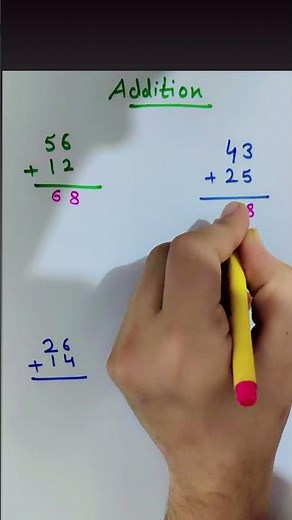 Addition
56
+ 12
68
43
+ 25
8
26
+ 14